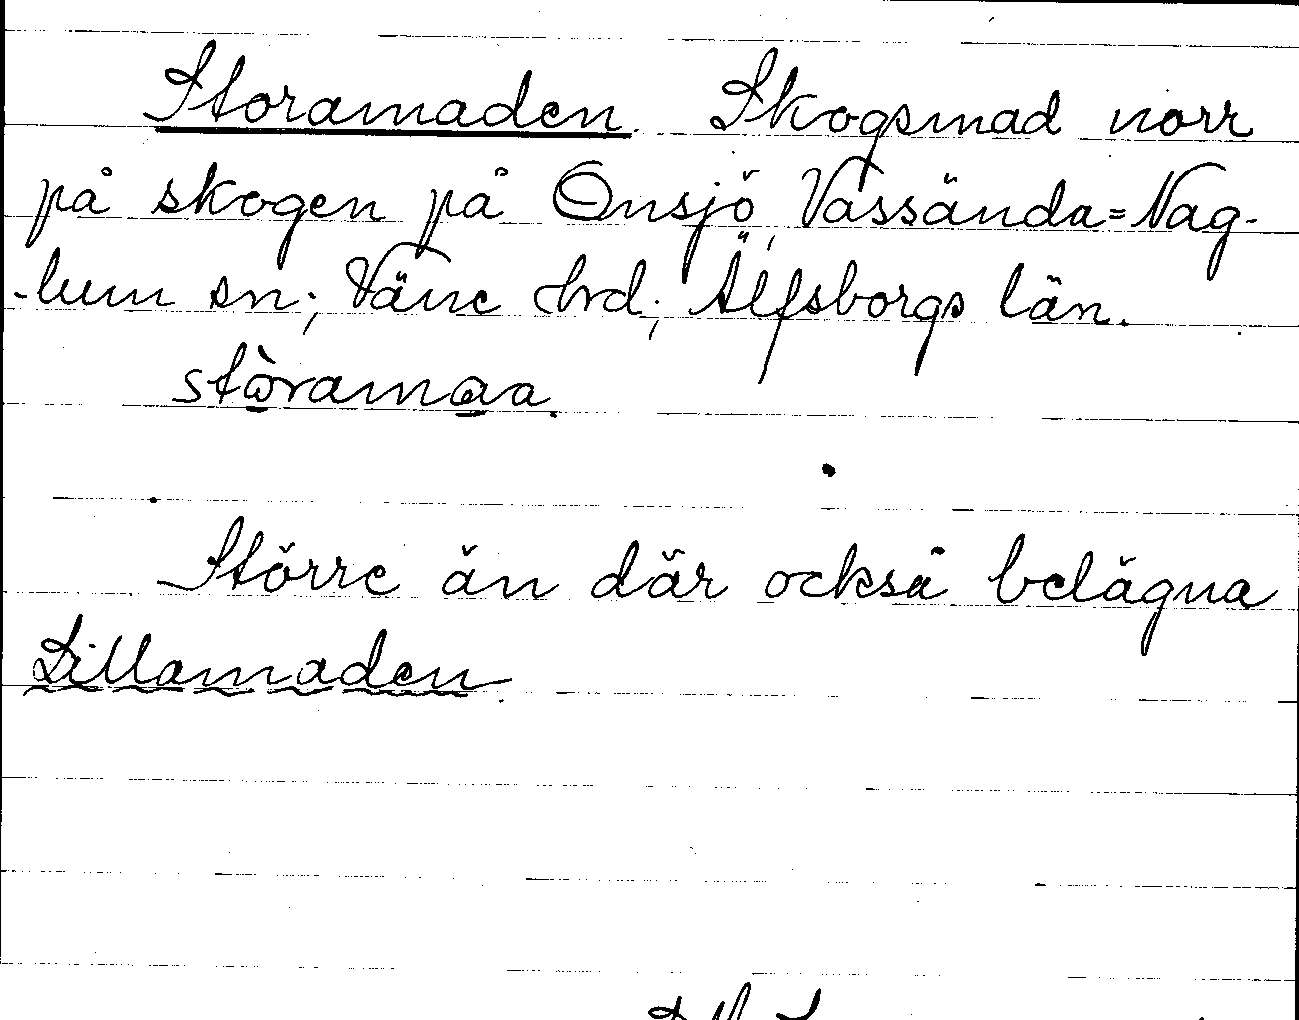 Storamaden. Skogsmad norr
på skogen på Onsjö, Vassända=Nag-
-lum sn; Väne hrd; Älfsborgs län.
stòramaa.
Större än där också belägna
Lillamaden.